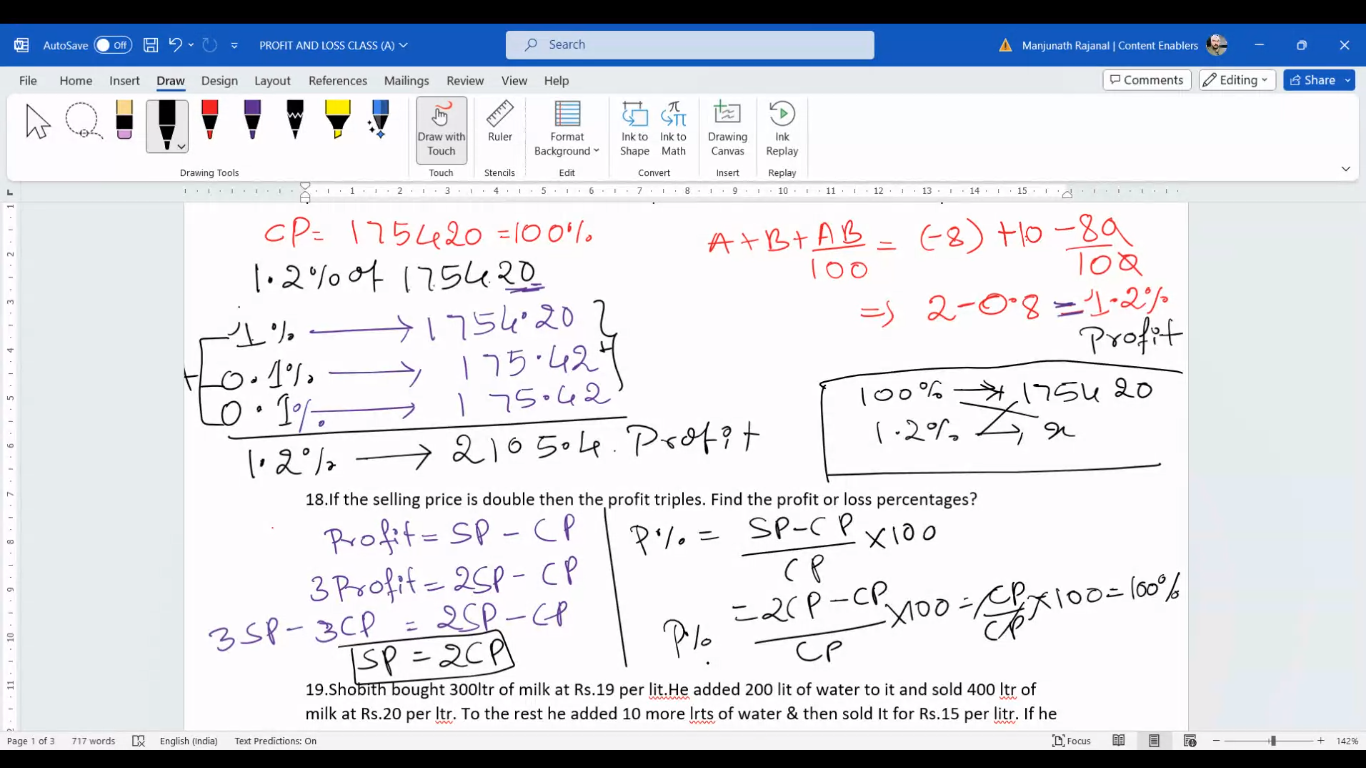 AutoSave Off PROFIT AND LOSS CLASS (A) Search Manjunath Rajanal | Content Enablers
File Home Insert Draw Design Layout References Mailings Review View Help Comments Editing Share
Draw with Touch
Ruler
Format Background
Ink to Shape
Ink to Math
Drawing Canvas
Ink Replay
Drawing Tools Touch Stencils Edit Convert Insert Replay
1 2 3 4 5 6 7 8 9 10 11 12 13 14 15
CP = 175420 = 100%
1.2% of 175420
1% → 1754.20
+ 0.1% → 175.42 +
0.1% → 175.42
1.2% → 2105.04. Profit
A + B + AB/100 = (-8) + 10 - 80/100
⇒ 2 - 0.8 = 1.2%
Profit
100% → 175420
1.2% → x
18.If the selling price is double then the profit triples. Find the profit or loss percentages?
Profit = SP - CP
3 Profit = 2SP - CP
3SP - 3CP = 2SP - CP
SP = 2CP
P% = SP - CP/CP × 100
P% = 2CP - CP/CP × 100 = CP/CP × 100 = 100%
19.Shobith bought 300ltr of milk at Rs.19 per lit.He added 200 lit of water to it and sold 400 ltr of
milk at Rs.20 per ltr. To the rest he added 10 more lrts of water & then sold It for Rs.15 per litr. If he
Page 1 of 3 717 words English (India) Text Predictions: On Focus 142%